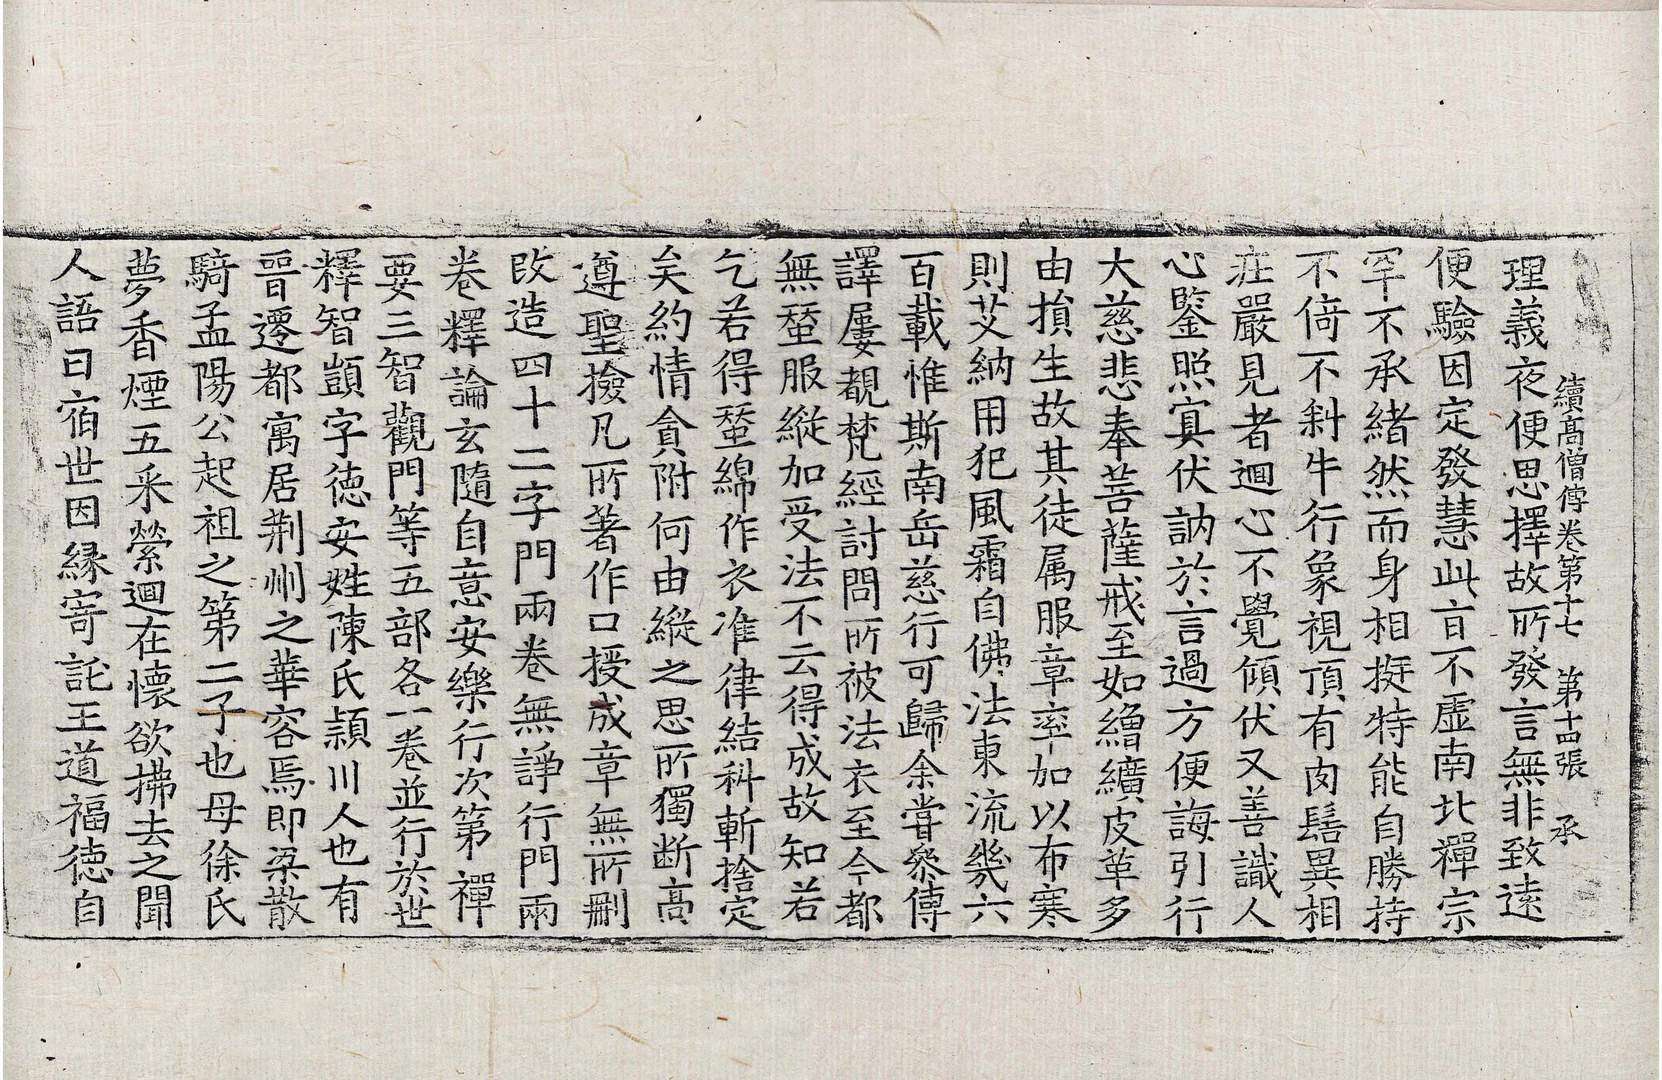 續高僧傳卷第十七　第十四張　承
理義夜便思擇故所發言無非致遠
便驗因定發慧此言不虛南北禪宗
罕不承緒然而身相挺特能自勝持
不倚不斜牛行象視頂有肉髻異相
莊嚴見者迴心不覺傾伏又善識人
心鑒照冥伏訥於言過方便誨引行
大慈悲奉菩薩戒至如繒纊皮革多
由損生故其徒属服章率加以布寒
則艾納用犯風霜自佛法東流幾六
百載惟斯南岳慈行可歸余嘗叅傳
譯屢覩梵經討問所被法衣至今都
無蝅服縱加受法不云得成故知若
乞若得蝅綿作衣准律結科斬捨定
矣約情貪附何由縱之思所獨断高
遵聖撿凡所著作口授成章無所刪
改造四十二字門兩卷無諍行門兩
卷釋論玄隨自意安樂行次第禪
要三智觀門等五部各一卷並行於世
釋智顗字德安姓陳氏頴川人也有
晉遷都寓居荆州之華容焉即梁散
騎孟陽公起祖之第二子也母徐氏
夢香煙五采縈迴在懷欲拂去之聞
人語曰宿世因縁寄託王道福徳自